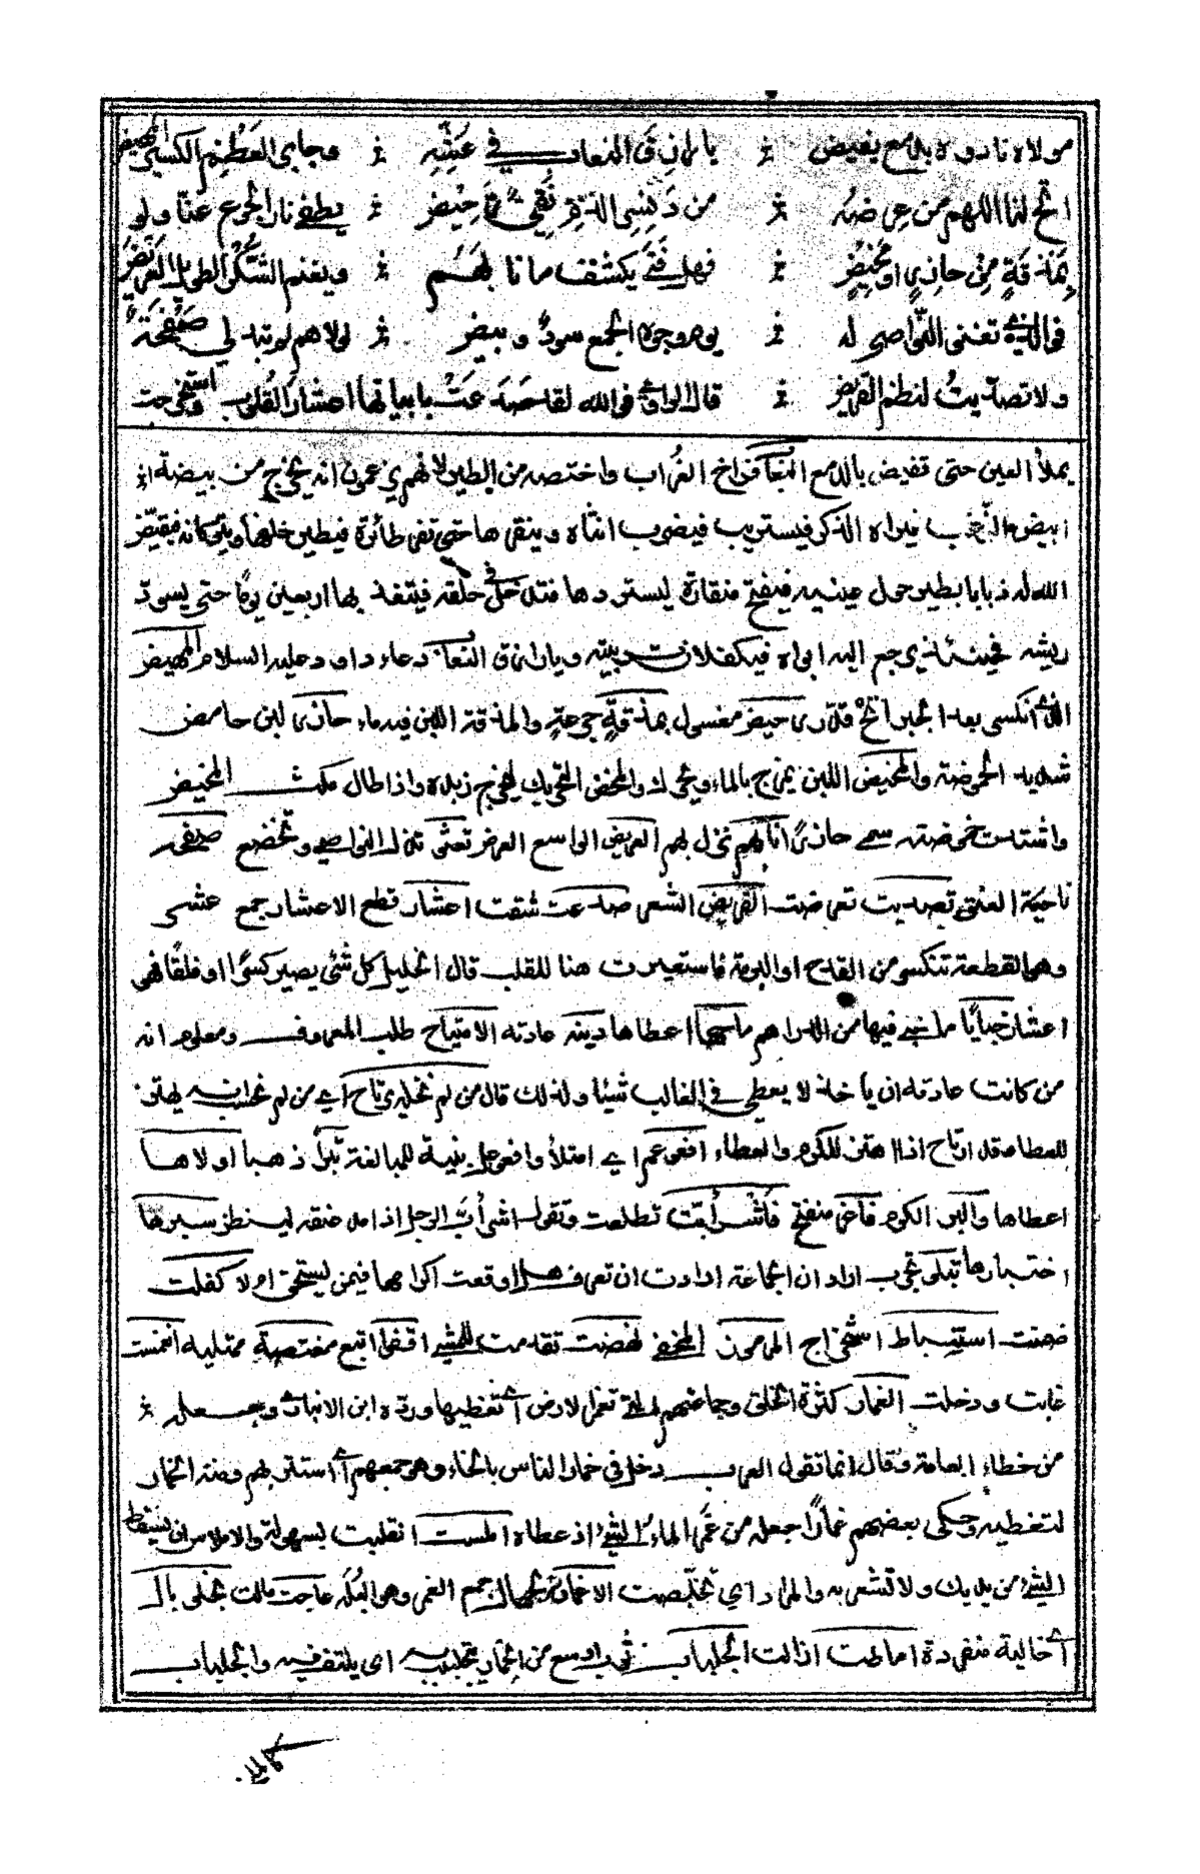 مولاه نادوه بدمع يفيض ⁘ يا رازق النعاب في عشّه ⁘ وجابر العظم الكسير المهيض
اتح لنا اللهم من عرضه ⁘ من دنس الذم نقي رحيض ⁘ يطفي نار الجوع عنا ولو
بمذقة من حازر او مخيض ⁘ فهل فتى يكشف ما نابهم ⁘ ويغنم الشكر الطويل العريض
فوالذي تعنو النواصي له ⁘ يوم وجوه الجمع سود وبيض ⁘ لولاهم لم تبد لي صفحة
ولا تصديت لنظم القريض ⁘ قال الراوي فوالله لقد صدعت بابياتها اعشار القلوب واستخرجت
يملأ العين حتى تفيض بالدمع النعاب فراخ الغراب واختصه من الطير لانهم يزعمون انه يخرج من بيضة
ابيض الزغب فيراه الذكر فيستريب فيضرب انثاه وينقرها حتى تفر طائرة فيطير خلفها ويتركانه فيقيض
الله له ذبابا يطير حول عينيه فيفتح منقاره ليستردها فتدخل في حلقه فيتغذى بها اربعين يوما حتى يسود
ريشه فحينئذ يرجع اليه ابواه فيكفلانه ويا رازق النعاب دعاء داود عليه السلام المهيض
الذي انكسر بعد الجبر اتح قدر رحيض مغسول بمذقة جرعة والمذقة اللبن فيه ماء حازر لبن حامض
شديد الحموضة والمخيض اللبن يمزج بالماء ويحرك والمخض التحريك ليخرج زبده واذا طال مكث المخيض
واشتدت حموضته سمي حازرا نابهم نزل بهم العريض الواسع العرض تعنو تذل النواصي وتخضع صفحة
ناحية العنق تصديت تعرضت القريض الشعر صدعت شققت اعشار قطع الاعشار جمع عشر
وهو القطعة تنكسر من القدح او البرمة فاستعيرت هنا للقلب قال الخليل كل شئ يصير كسرا او فلقا فهي
اعشار خبايا ما خبئ فيها من الدراهم ماحها اعطاها دينه عادته الامتياح طلب المعروف ومعلوم انه
من كانت عادته ان ياخذ لا يعطي في الغالب شيئا ولذلك قال من لم نخله يرتاح اي من لم نحسبه يهتز
للعطاء قد ارتاح اذا اهتز للكرم والعطاء افعوعم اي امتلأ وافعوعل بنية للمبالغة تبرا ذهبا اولاها
اعطاها والبر الكرم فاغر منفتح فاشرأبت تطلعت وتقول اشرأب الرجل اذا مد عنقه لينظر سبرها
اختبارها تبلى تجرب اراد ان الجماعة ارادت ان تعرف هل اوقعت اكرامها فيمن يستحق ام لا كفلت
ضمنت استنباط استخراج المرموز المخفي نهضت تقدمت للمشي اقفو اتبع مغتصة ممتلية انغمست
غابت ودخلت الغمار كثرة الخلق وجماعتهم التي تغمر الارض اي تغطيها ورده ابن الانباري وجعله
من خطاء العامة وقال انما تقول العرب دخل في خمار الناس بالخاء وهو جمعهم اي استتر بهم ومنه الخمار
لتغطيه وحكى بعضهم غمارا جعله من غمر الماء الشئ اذ عطاه املست انفلتت بسهولة والاملاس ان يسقط
الشئ من يديك ولا تشعر به والمراد اي تخلصت الاغمار الجهال جمع الغمر وهو البله عاجت مالت بخلى بال
اي خالية منفردة اماطت ازالت الجلباب ثوب اوسع من الخمار يتجلبب اي يلتفف فيه والجلباب